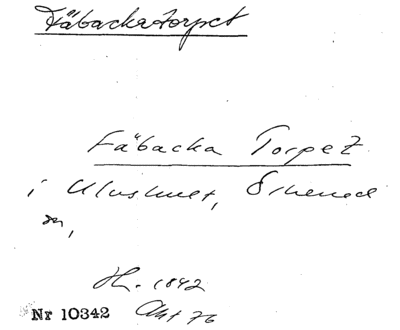 Fäbackatorpet
Fäbacka Torpet
i Ulvshult, Ö
sn,
Hf. 1842
Nr 10342 Akt 76